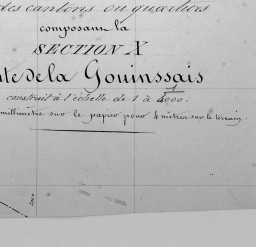 des cantons ou quartiers
composant la
SECTION X
te de la Gouinssais
construit à l'échelle de 1 à 4000.
millimètre sur le papier pour 4 mètres sur le terrain.